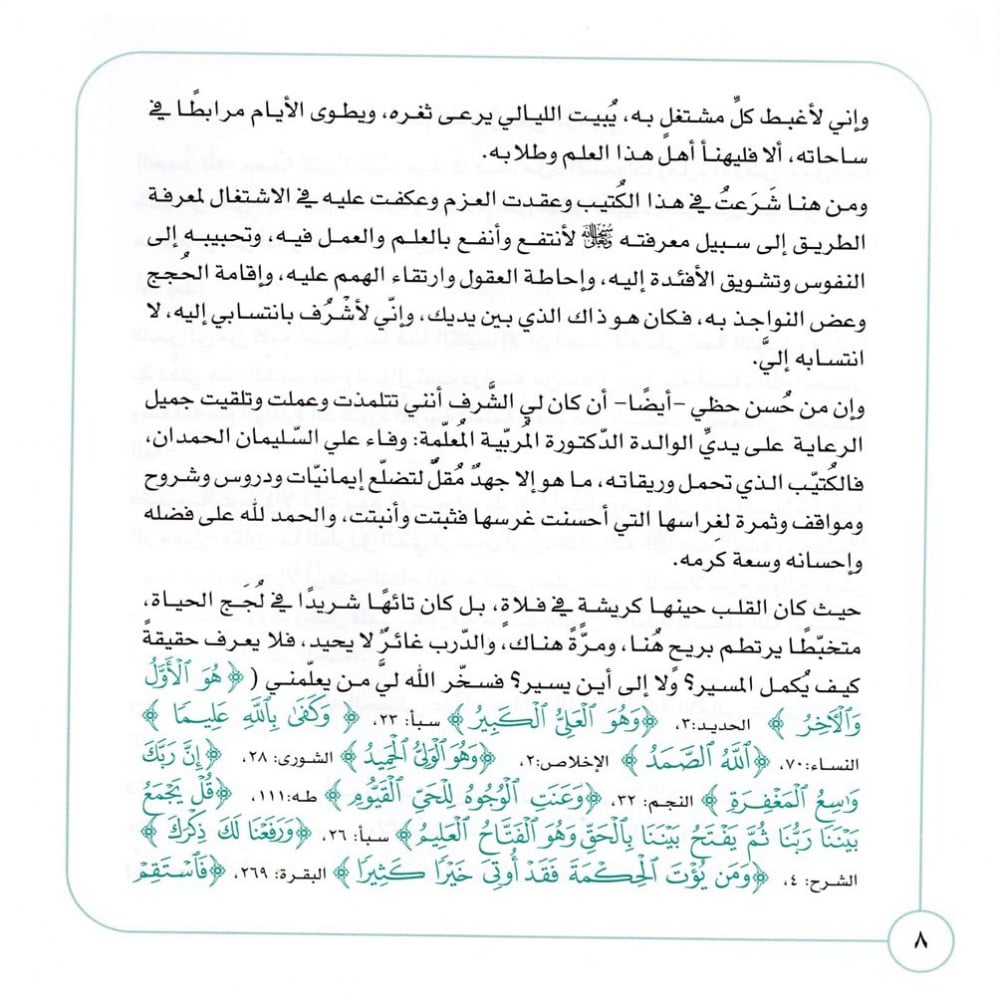 وإني لأغبط كلِّ مشتغل به، يُبيت الليالي يرعى ثغره، ويطوى الأيام مرابطًا في
ساحاته، ألا فليهنأ أهل هذا العلم وطلابه.
ومن هنا شَرَعتُ في هذا الكُتيب وعقدت العزم وعكفت عليه في الاشتغال لمعرفة
الطريق إلى سبيل معرفته ﷻ لأنتفع وأنفع بالعلم والعمل فيه، وتحبيبه إلى
النفوس وتشويق الأفئدة إليه، وإحاطة العقول وارتقاء الهمم عليه، وإقامة الحُجج
وعض النواجذ به، فكان هو ذاك الذي بين يديك، وإنّي لأشْرُف بانتسابي إليه، لا
انتسابه إليَّ.
وإن من حُسن حظي -أيضًا- أن كان لي الشَّرف أنني تتلمذت وعملت وتلقيت جميل
الرعاية على يديِّ الوالدة الدّكتورة المُربّية المُعلّمة: وفاء علي السّليمان الحمدان،
فالكُتيّب الذي تحمل وريقاته، ما هو إلا جهدٌ مُقلٍّ لتضلّع إيمانيّات ودروس وشروح
ومواقف وثمرة لغراسها التي أحسنت غرسها فثبتت وأنبتت، والحمد لله على فضله
وإحسانه وسعة كَرمه.
حيث كان القلب حينها كريشة في فلاة، بل كان تائهًا شريدًا في لُجَج الحياة،
متخبّطًا يرتطم بريحٍ هُنا، ومرّةً هناك، والدّرب غائرٌ لا يحيد، فلا يعرف حقيقةً
كيف يُكمل المسير؟ ولا إلى أين يسير؟ فسخّر الله ليَّ من يعلّمني ( ﴿ هُوَ ٱلْأَوَّلُ
وَٱلْآخِرُ ﴾ الحديد:٣، ﴿وَهُوَ ٱلْعَلِيُّ ٱلْكَبِيرُ﴾ سبأ: ٢٣، ﴿ وَكَفَىٰ بِٱللَّهِ عَلِيمًا ﴾
النساء:٧٠، ﴿ٱللَّهُ ٱلصَّمَدُ ﴾ الإخلاص:٢، ﴿وَهُوَ ٱلْوَلِيُّ ٱلْحَمِيدُ﴾ الشورى: ٢٨، ﴿إِنَّ رَبَّكَ
وَٰسِعُ ٱلْمَغْفِرَةِ ﴾ النجم: ٣٢، ﴿وَعَنَتِ ٱلْوُجُوهُ لِلْحَيِّ ٱلْقَيُّومِ ﴾ طه:١١١، ﴿قُلْ يَجْمَعُ
بَيْنَنَا رَبُّنَا ثُمَّ يَفْتَحُ بَيْنَنَا بِٱلْحَقِّ وَهُوَ ٱلْفَتَّاحُ ٱلْعَلِيمُ﴾ سبأ: ٢٦، ﴿وَرَفَعْنَا لَكَ ذِكْرَكَ ﴾
الشرح: ٤، ﴿وَمَن يُؤْتَ ٱلْحِكْمَةَ فَقَدْ أُوتِىَ خَيْرًا كَثِيرًا ﴾ البقرة: ٢٦٩، ﴿فَٱسْتَقِمْ
٨